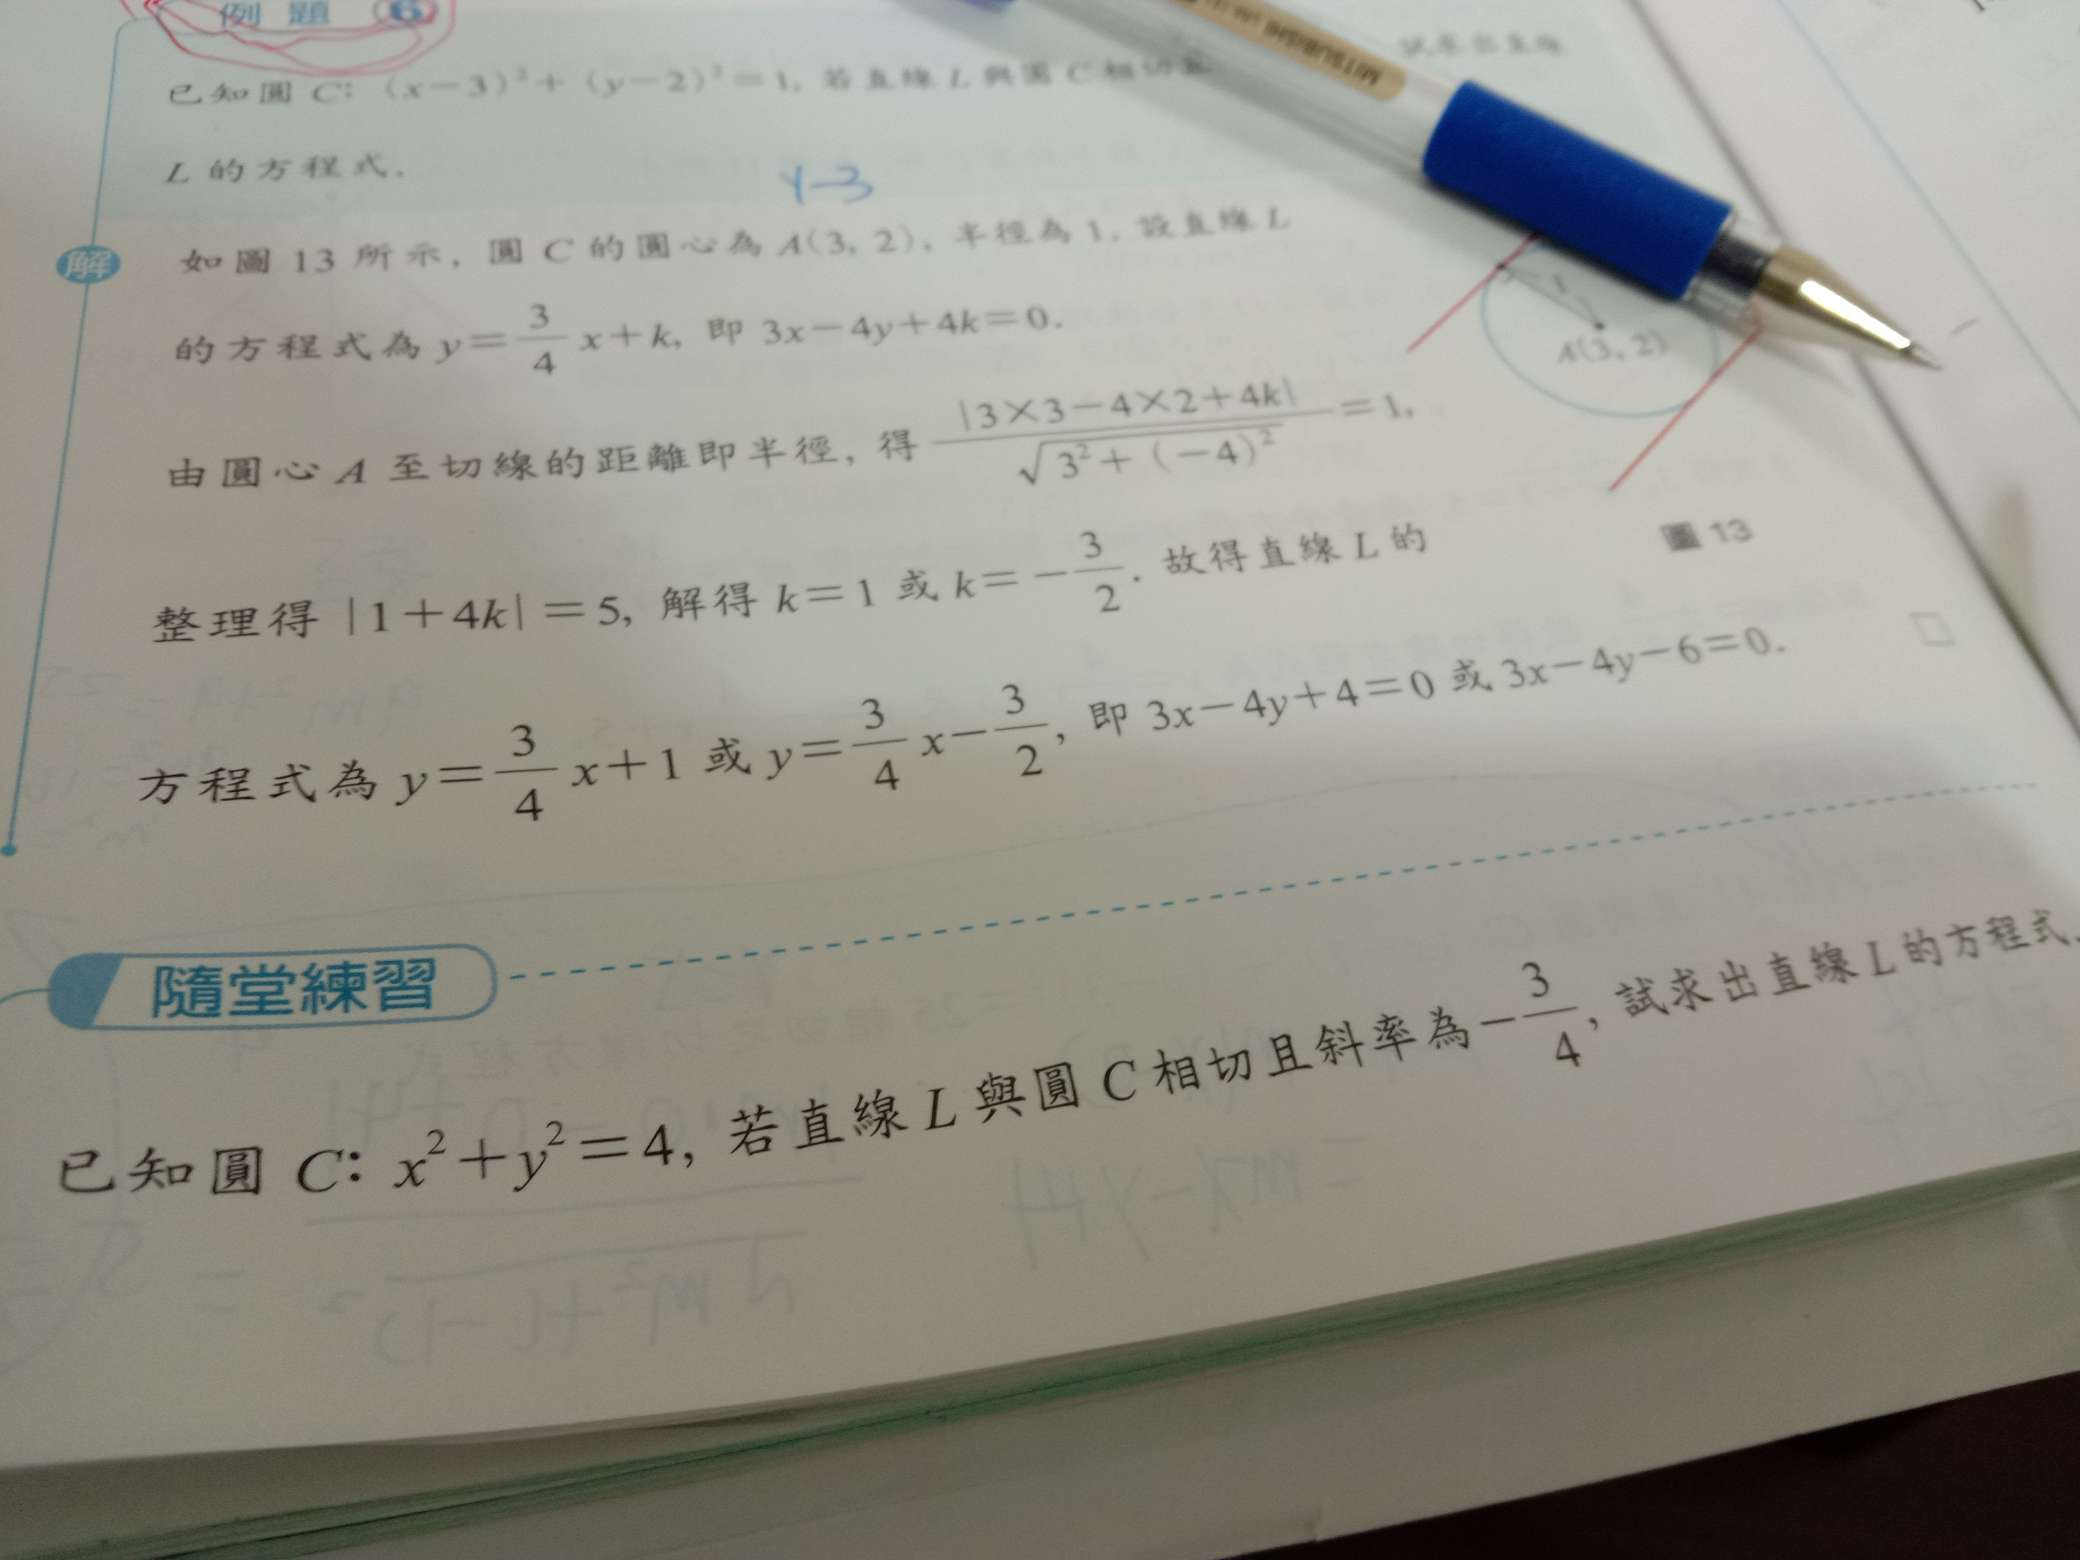 例題 6
已知圓 C: (x－3)²＋(y－2)²＝1, 若直線 L 與圓 C 相切且 試求出直線
L 的方程式.
y-3
解 如圖 13 所示, 圓 C 的圓心為 A(3, 2), 半徑為 1. 設直線 L
的方程式為 y＝3/4 x＋k, 即 3x－4y＋4k＝0.
由圓心 A 至切線的距離即半徑, 得 |3×3－4×2＋4k| / √(3²＋(－4)²) ＝1,
整理得 |1＋4k|＝5, 解得 k＝1 或 k＝－3/2. 故得直線 L 的
方程式為 y＝3/4 x＋1 或 y＝3/4 x－3/2, 即 3x－4y＋4＝0 或 3x－4y－6＝0.
1
A(3, 2)
圖 13
隨堂練習
已知圓 C: x²＋y²＝4, 若直線 L 與圓 C 相切且斜率為－3/4, 試求出直線 L 的方程式.